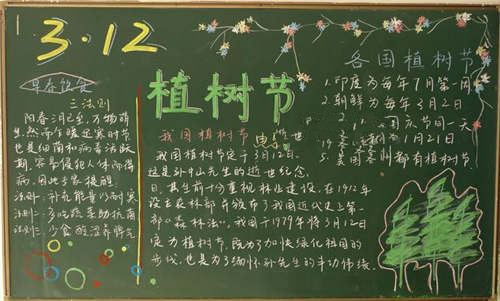 3·12
早春饮食
三法则
阳春三月已至,万物萌
生,然而乍暖还寒时节
也是细菌和病毒活跃
期,容易侵犯人体而得
病,因此专家提醒
法则一:补充能量以耐寒
法则二:多吃蔬菜助抗菌
法则三:少食酸滋养脾气
植树节
我国植树节
我国植树节定于3月12日,
这是孙中山先生的逝世纪念
日,其生前十分重视林业建设,在1912年
设立农林部,
我国近代史上第一
部《森林法》,我国于1979年将3月12日
定为植树节,既为了加快绿化祖国的
步伐,也是为了缅怀孙先生的丰功伟绩.
各国植树节
1.印度为每年7月第一周
2.朝鲜为每年3月2日
国庆节同一天
1月21日
5.美国
州都有植树节